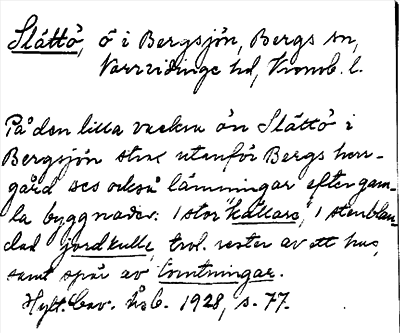 Slättö, ö i Bergsjön, Bergs sn,
Norrvidinge hd, Kronob. l.
På den lilla vackra ön Slättö i
Bergsjön strax utanför Bergs herr-
gård ses också lämningar efter gam-
la byggnader: 1 stor "källare", 1 stenblan-
dad jordkulle, trol. rester av ett hus,
samt spår av tomtningar.
Hylt. Cav. årsb. 1928, s. 77.